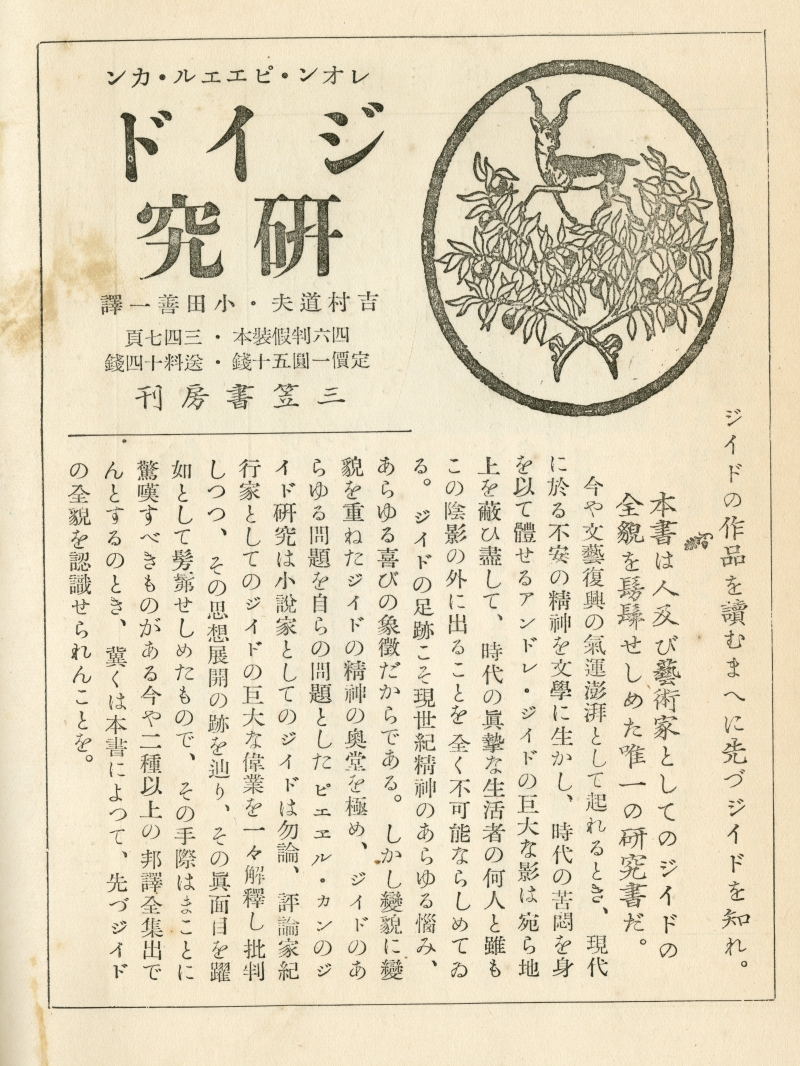 レオン・ピエエル・カン
ジイド
研究
吉村道夫・小田善一譯
四六判假裝本・三四七頁
定價一圓五十錢・送料十四錢
三笠書房刊
ジイドの作品を讀むまへに先づジイドを知れ。
本書は人及び藝術家としてのジイドの
全貌を髣髴せしめた唯一の研究書だ。
今や文藝復興の氣運澎湃として起れるとき、現代
に於る不安の精神を文學に生かし、時代の苦悶を身
を以て體せるアンドレ・ジイドの巨大な影は宛ら地
上を蔽ひ盡して、時代の眞摯な生活者の何人と雖も
この陰影の外に出ることを全く不可能ならしめてゐ
る。ジイドの足跡こそ現世紀精神のあらゆる惱み、
あらゆる喜びの象徴だからである。しかし變貌に變
貌を重ねたジイドの精神の奧堂を極め、ジイドのあ
らゆる問題を自らの問題としたピエヱル・カンのジ
イド研究は小說家としてのジイドは勿論、評論家紀
行家としてのジイドの巨大な偉業を一々解釋し批判
しつつ、その思想展開の跡を辿り、その眞面目を躍
如として髣髴せしめたもので、その手際はまことに
驚嘆すべきものがある今や二種以上の邦譯全集出で
んとするのとき、冀くは本書によつて、先づジイド
の全貌を認識せられんことを。